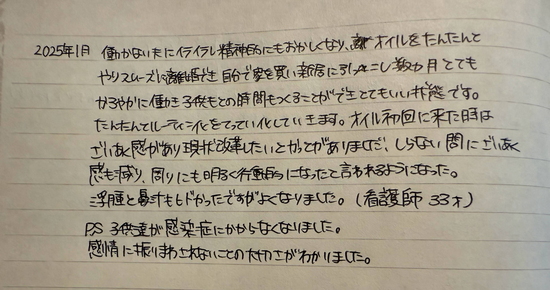 2025年1月 働かない夫にイライラし精神的にもおかしくなり、オイルをたんたんと
やりスムーズに離婚でき自分で家を買い新居に引っこし数カ月とても
かろやかに働き子供もとの時間もつくることができとてもいい状態です。
たんたんとルーティン化をてってい化していきます。オイル初回に来た時は
ざいあく感があり現状改革したいとかってがありましたが、しらない間にざいあく
感も減り、周りにも明るく行動的になったと言われるようになった。
浮腫と暑汁もひどかったですがよくなりました。(看護師 33才)
PS 子供達が感染症にかからなくなりました。
感情に振りまわされないことの大切さがわかりました。